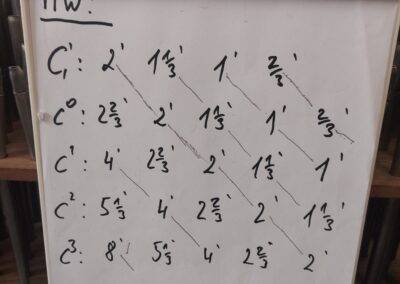 HW:
C': 2' 1 1/3' 1' 2/3'
C⁰: 2 2/3' 2' 1 1/3' 1' 2/3'
C¹: 4' 2 2/3' 2' 1 1/3' 1'
C²: 5 1/3' 4' 2 2/3' 2' 1 1/3'
C³: 8' 5 1/3' 4' 2 2/3' 2'